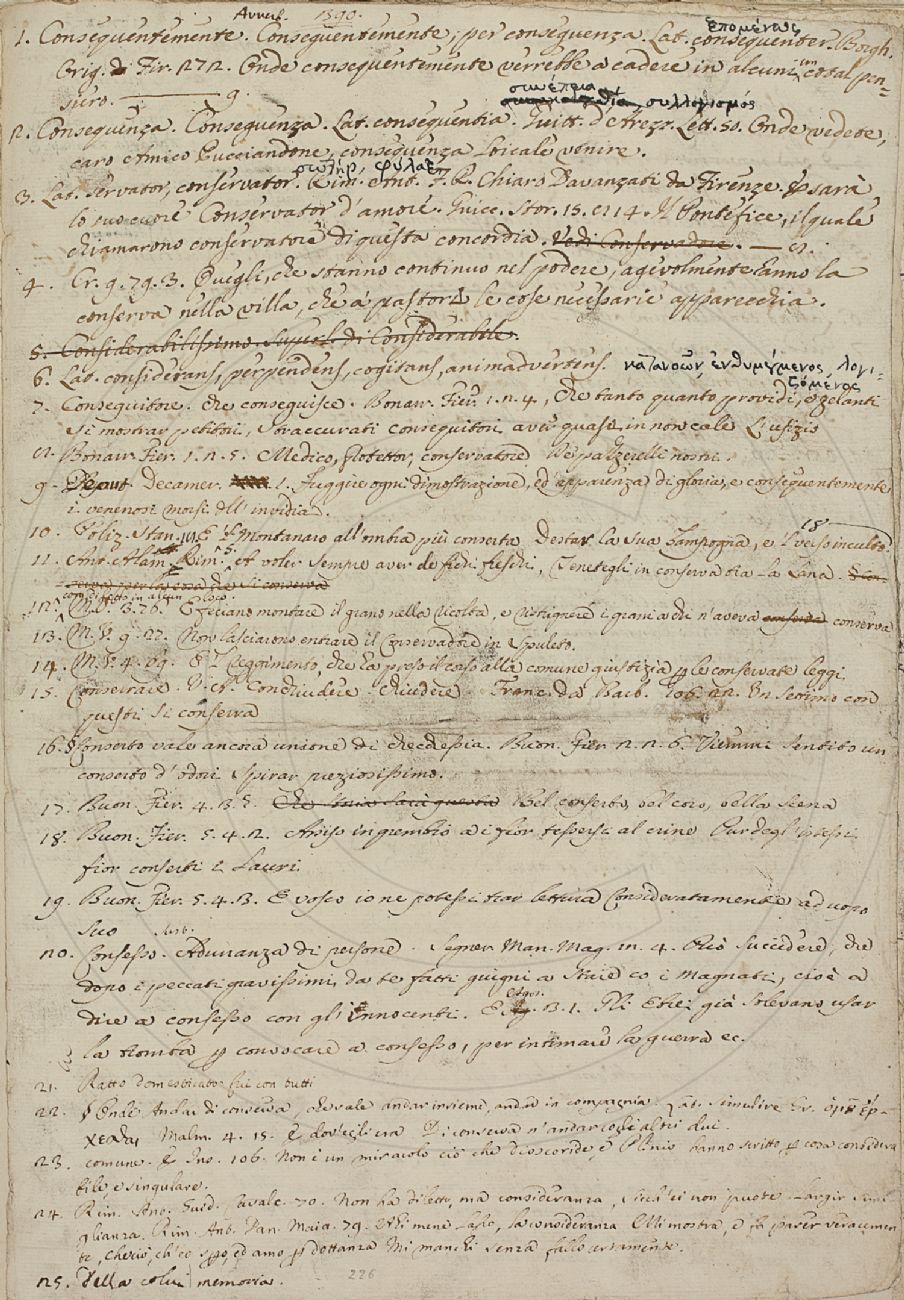 Avverb. 1390.
1. Conseguentemente. Conseguentemente, per conseguenza. Lat. consequenter. ἑπομένως Borgh.
Orig. Fir. 272. Onde conseguentemente verrebbe a cadere in alcuni cotal pen-
siero. 9.
συνέπεια συλλογισμός
2. Conseguenza. Conseguenza. Lat. consequentia. Guitt. d'Arezz. Lett. 50. Onde vedete,
caro Amico Pucciandone, conseguenza loicale venire.
σωτὴρ, φύλαξ
3. Lat. servator, conservator. Rim. Ant. F. R. Chiaro Davanzati da Firenze. E sarà
lo suo cuore Conservator d'amore. Guicc. Stor. 15. 114. Il Pontefice, il quale
chiamarono conservatore di questa concordia. Vedi Conservadore.
4. Cr. 9. 79. 3. Quegli, che stanno continuo nel podere, agevolmente hanno la
conserva nella villa, che a' pastori le cose necessarie apparecchia.
5. Considerabilissimo. Superl. di Considerabile.
6. Lat. considerans, perpendens, cogitans, animadvertens. κατανοῶν, ἐνθυμούμενος, λογι-
ζόμενος
7. Conseguitore. che conseguisce. Bonarr. Fier. 1. 2. 4. Che tanto quanto providi, e zelanti
Si mostrar petitori, straccurati conseguitori aver quasi in non cale L'ufizio
8. Bonarr. Fier. 1. 2. 5. Medico, protettor, conservatore De' pazzerelli nostri.
9. Decamer. 1. Fuggire ogni dimostrazione, ed apparenza di gloria, e conseguentemente
i venenosi morsi dell'invidia.
10. Poliz. Stan. E 'l Montanaro all'ombra più conserta Destar la sua Zampogna, e 'l verso inculto. 18
11. Ant. Alam. Rim. 5. A voler sempre aver de' piedi freschi, Tenetegli in conserva tra la lana.
12. M. V. 3. 76. E feciono montare il grano nella ricolta, e ristrignere i grani a chi n'aveva conserva
13. M. V. 9. 22. Non lasciarono entrare il Conservadore in Spuleto.
14. M. V. 4. 69. E 'l reggimento, che ha preso il caso alla comune giustizia p le conservate leggi
15. Conserrare. V. A. Conchiudere. chiudere. Franc. da Barb. 206. 22. In settimo con
questi si conserra
16. § Conserto vale ancora unione di checchessia. Buon. Fier. 2. 2. 6. Viemmi sentito un
conserto d'odori spirar preziosissimo.
17. Buon. Fier. 4. 3. 5. Del conserto, del coro, della scena
18. Buon. Fier. 5. 4. 2. Assiso in grembio a i fior tessersi al crine Pur degl'istessi
fior conserti i lauri
19. Buon. Fier. 5. 4. 3. E vosco io ne potessi trar lettura Consideratamente ad uopo
suo
20. Consesso. Sust. Adunanza di persone. Segner. Man. Mag. 10. 4. Può succedere, che
dopo i peccati gravissimi da te fatti quigni a stare co i magnati, cioè a
dire a consesso con gl'Innocenti. E Agos. 13. 1. Gli Ebrei già solevano usar
la tromba p convocare a consesso, per intimare la guerra ec.
21. Ratto domesticatore fui con tutti
22. § Onde Andar di conserva, che vale andar insieme, andar in compagnia. Lat. simul ire Gr. ὁμοῦ ἔρ-
χεσθαι Malm. 4. 15. E dov'egli era Di conserva n'andar cogli altri dui.
23. comune. E Ino. 106. Non è un miracolo ciò che Dioscoride, e Plinio hanno scritto, p cosa considera
bile, e singulare.
24. Rim. Ant. Guid. Cavalc. 70. Non ha diletto, ma consideranza,
glianza. Rim. Ant. Dan. Maia. 79. Ohi mene lasso, la consideranza Mi mostra,
Mi manchi senza fallo certamente.
25. Della colui memoria.
226